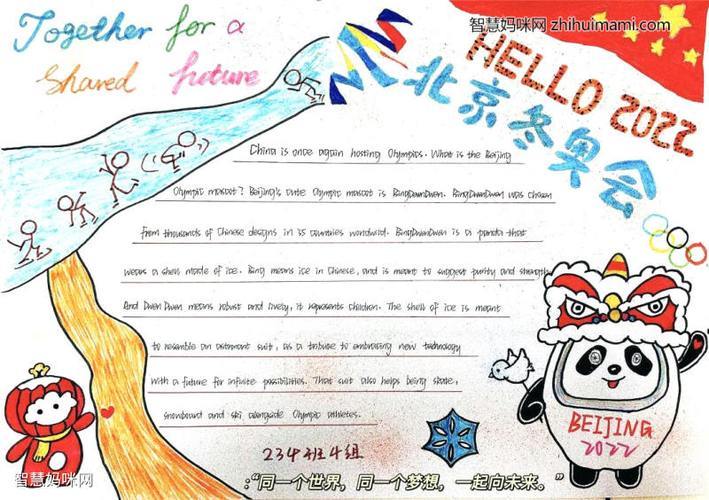 智慧妈咪网 zhihuimami.com
Together for a
Shared future
HELLO 2022
北京冬奥会
China is once again hosting Olympics. What is the Beijing
Olympic mascot? Beijing's cute Olympic mascot is BingDwenDwen. BingDwenDwen was chosen
from thousands of Chinese designs in 35 countries worldwid. BingDwenDwen is a panda that
wears a shell made of ice. Bing means ice in Chinese, and is meant to suggest purity and strength
And Dwen Dwen means robust and lively, it represents children. The shell of ice is meant
to resemble an astronaut suit, as a tribute to embracing new technology
with a future for infinite possibilities. That suit also helps being skate,
snowbound and ski alongside Olympic athletes.
234班4组
BEIJING
2022
智慧妈咪网
:“同一个世界，同一个梦想，一起向未来。”